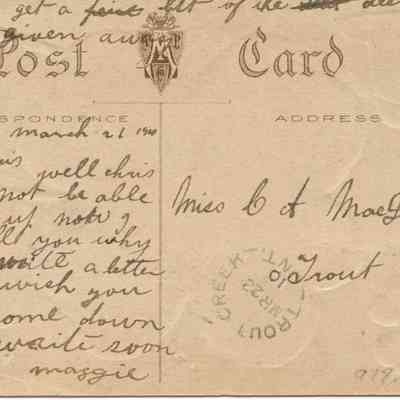 get a of the
given aw
Post Card
SPONDENCE
ADDRESS
march 21 190
well chris
not be able
up now I
ll you why
write a letter
wish you
ome down
write soon
maggie
Miss C A MacD
Trout
TROUT CREEK ONT.
MR 22